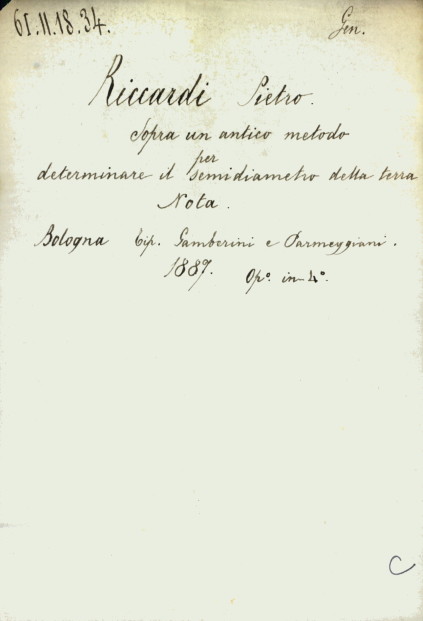 61.11.18.34.
Gen.
Riccardi Pietro.
Sopra un antico metodo
per
determinare il semidiametro della terra
Nota.
Bologna Tip. Gamberini e Parmeggiani.
1887. Op.º in-4º.
C